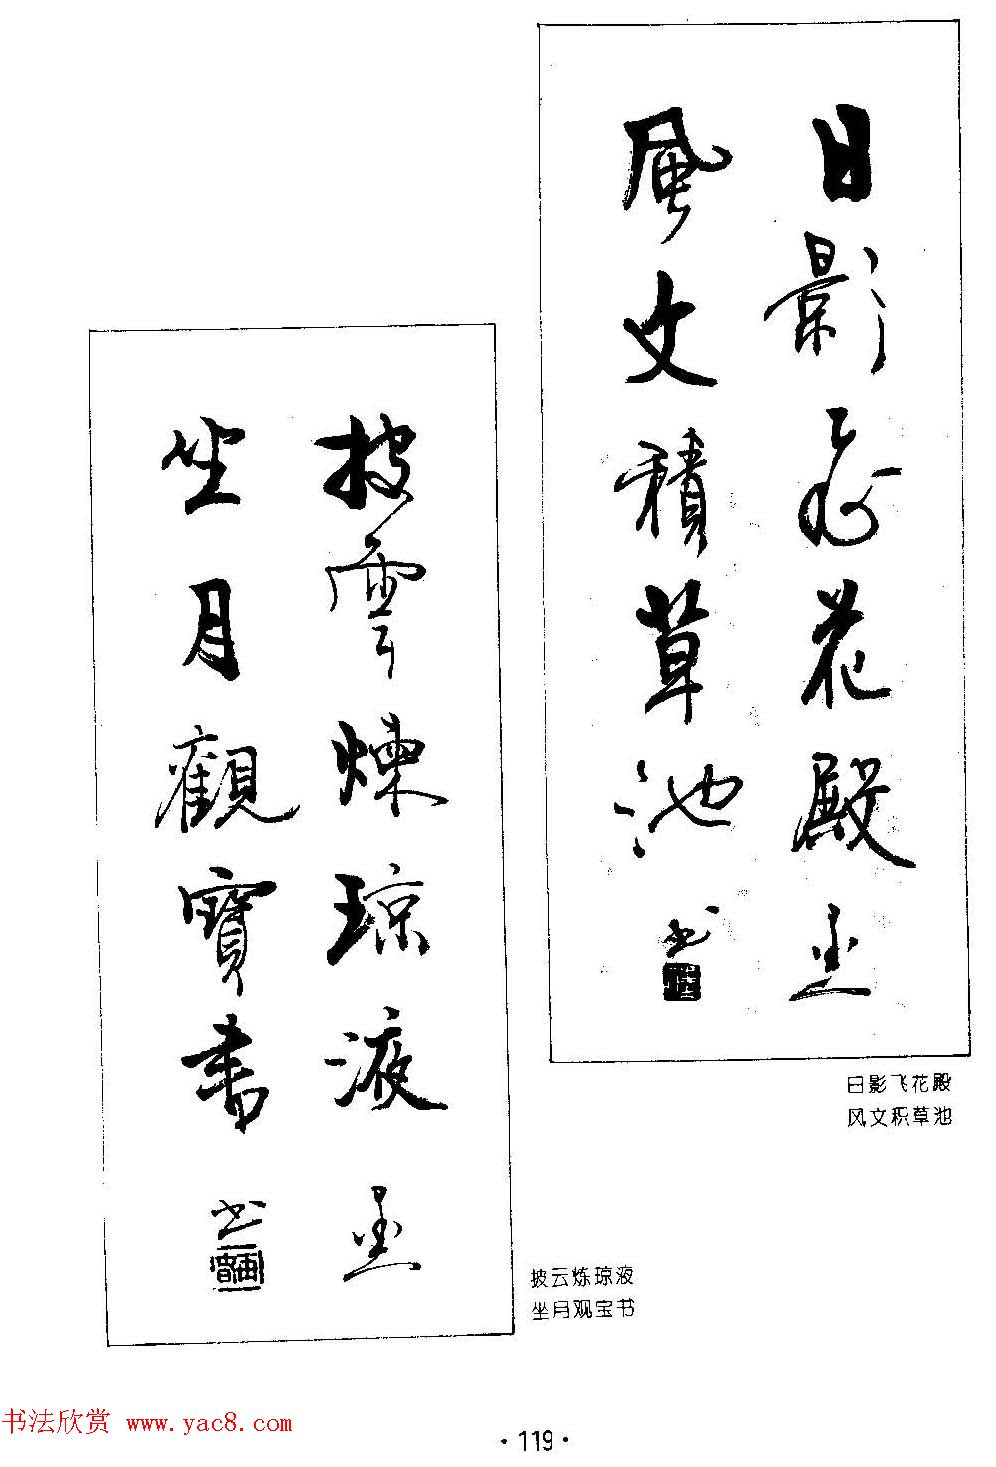 日影飛花殿
風文積草池
书
日影飞花殿
风文积草池
披雲煉琼液
坐月觀寶書
书
披云炼琼液
坐月观宝书
书法欣赏 www.yac8.com
·119·